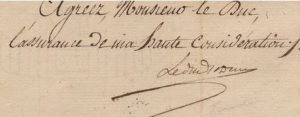 Agréez, Monsieur le Duc,
l'assurance de ma haute considération./.